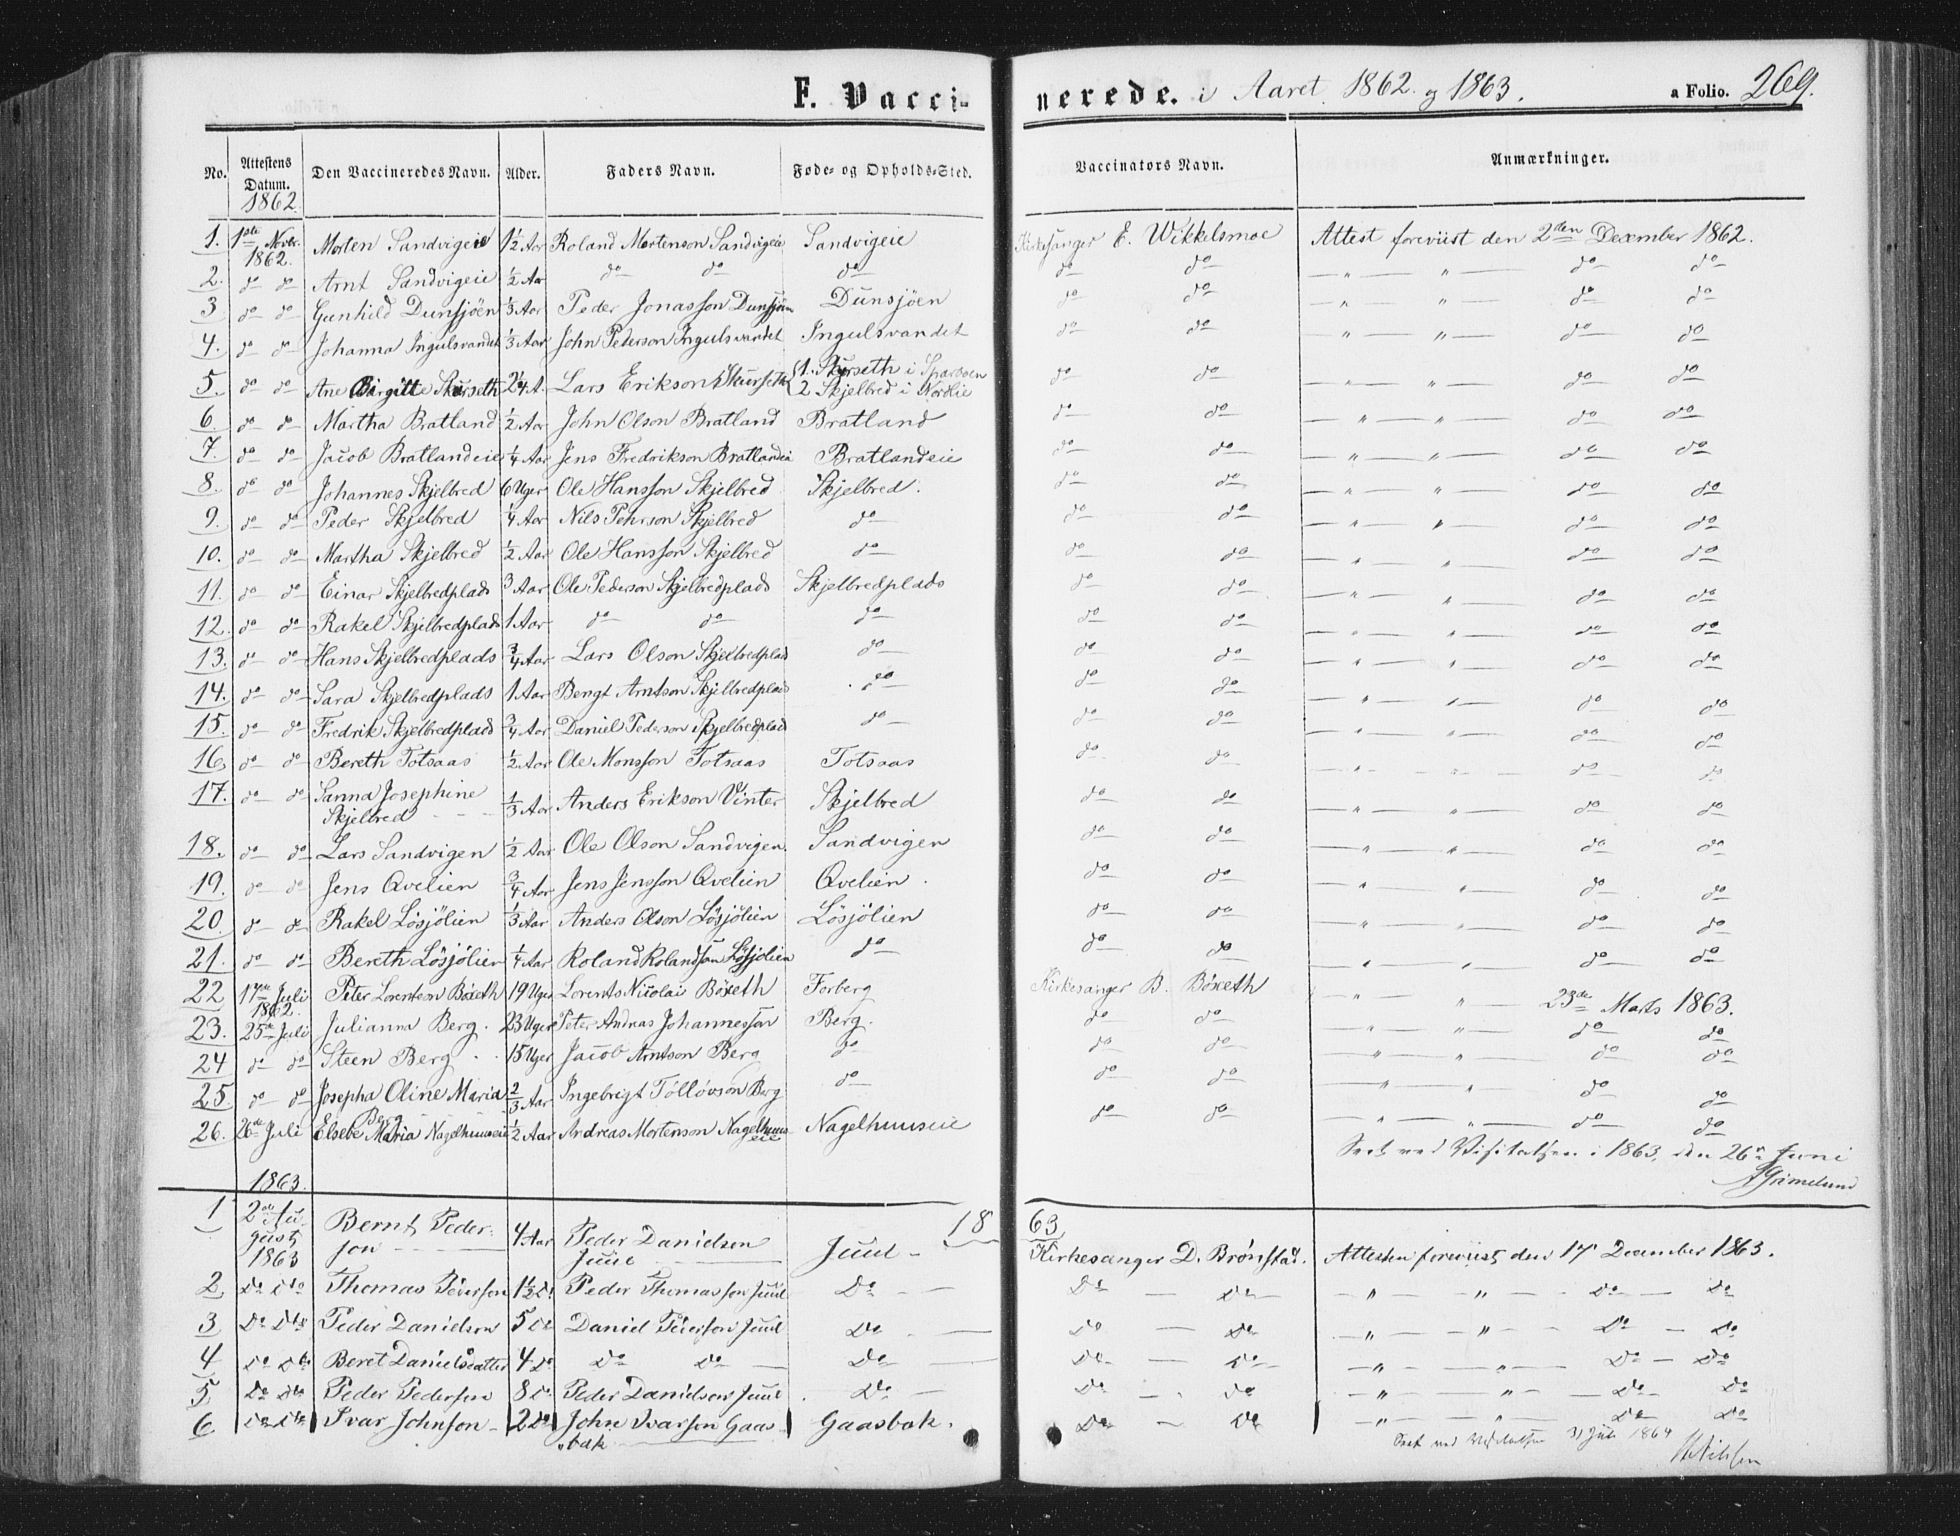 F. Vaccinerede. i Aaret 1862 og 1863. a Folio. 269.
No. Attestens Datum. Den Vaccineredes Navn. Alder. Faders Navn. Føde- og Opholds-Sted. Vaccinators Navn. Anmærkninger.
1862
1. 1ste Novr. 1862. Morten Sandvigeie 1½ Aar Roland Mortenson Sandvigeie Sandvigeie Kirkesanger E. Wikkelsmoe Attest foreviist den 2den December 1862.
2. do do Arnt Sandvigeie ½ Aar do do do do do — " " — do do
3 do do Gunhild Dunsjöen ⅓ Aar Peder Jonasson Dunsjöen Dunsjöen do do — " " — do do
4. do do Johanna Ingulsvandet ⅓ Aar John Pederson Ingulsvandet Ingulsvandet do do " " — do do
5. do do Ane Birgitte Skurseth 2¼ A. Lars Erikson Skurseth {1. Skurseth i Sparboen
2 Skjelbred i Nordlie do do — " " — do do
6. do do Martha Bratland ½ Aar John Olson Bratland Bratland do do " " — do do
7. do do Jacob Bratlandeie ¼ Aar Jens Fredrikson Bratlandei Bratlandeie do do — " " — do do
8. do do Johannes Skjelbred 6 Uger Ole Hansson Skjelbred Skjelbred. do do — " " — do do
9. do do Peder Skjelbred ¼ Aar Nils Pehrson Skjelbred do do do — " " — do do
10. do do Martha Skjelbred ½ Aar Ole Hansson Skjelbred do do do — " " — do do
11. do do Einar Skjelbredplads 3 Aar Ole Pederson Skjelbredplads Skjelbredplads do do — " " — do do
12. do do Rakel Skjelbredplads 1 Aar do do do do do — " " — do do
13. do do Hans Skjelbredplads ¾ Aar Lars Olson Skjelbredplads do do do — " " — do do
14. do do Sara Skjelbredplads 1 Aar Bengt Arntson Skjelbredplads do do do — " " — do do
15. do do Fredrik Skjelbredplads ¾ Aar Daniel Pederson Skjelbredplads do do do — " " — do do
16. do do Bereth Totsaas ½ Aar Ole Monsson Totsaas Totsaas do do — " " — do do
17. do do Sanna Josephine
Skjelbred ⅓ Aar Anders Erikson Vinter Skjelbred do do — " " — do do
18. do do Lars Sandvigen ½ Aar Ole Olson Sandvigen Sandvigen do do — " " — do do
19. do do Jens Qvelien ¾ Aar Jens Jensson Qvelien Qvelien. do do — " " — do do
20. do do Rakel Lösjölien ⅓ Aar Anders Olson Lösjölien Lösjölien do do — " " — do do
21. do do Bereth Lösjölien ¼ Aar Roland Rolandson Lösjölien do do do — " " — do do
22 17de Juli 1862. Peter Lorentson Böxeth 19 Uger Lorents Nicolai Böxeth Forberg Kirkesanger B. Böxeth — " " — 23de Marts 1863.
23. 25de Juli Julianna Berg. 23 Uger Peter Andreas Johannesson Berg. do do — " " — do do
24 do do Steen Berg 15 Uger Jacob Arntson Berg do do do — " " — do do
25. do do Josepha Oline Maria
Berg ⅔ Aar Ingebrigt Tollövson Berg do do do — " " — do do
26. 26de Juli Elsebe Maria Nagelhuuseie ½ Aar Andreas Mortenson Nagelhuus
eie Nagelhuuseie do do — " " — do do
Seet ved Visitatsen i 1863, den 26de Juni
Grimelund
1863.
1863
1 2den August 1863 Bernt Peder-
son 4 Aar Peder Danielsen
Juul Juul Kirkesanger D. Brönstad. Attesten foreviist den 17 December 1863.
2 Do Do Thomas Pederson 1½ Do Peder Thomasson Juul Do Do Do — " — " — Do Do
3 Do Do Peder Danielson 5 Do Daniel Pederson Juul Do Do Do — " — " — Do Do
4 Do Do Beret Danielsdatter 4 Do Do Do Do Do Do — " — " — Do Do
5 Do Do Peder Pedersen 8 Do Peder Danielson Juul Do Do Do — " — " — Do Do
6 Do Do Ivar Johnson 2 Do John Ivarson Gaas-
bak Gaasbak. Do Do — " — " — Do Do
Seet ved Visitatsen 31 Juli 1864